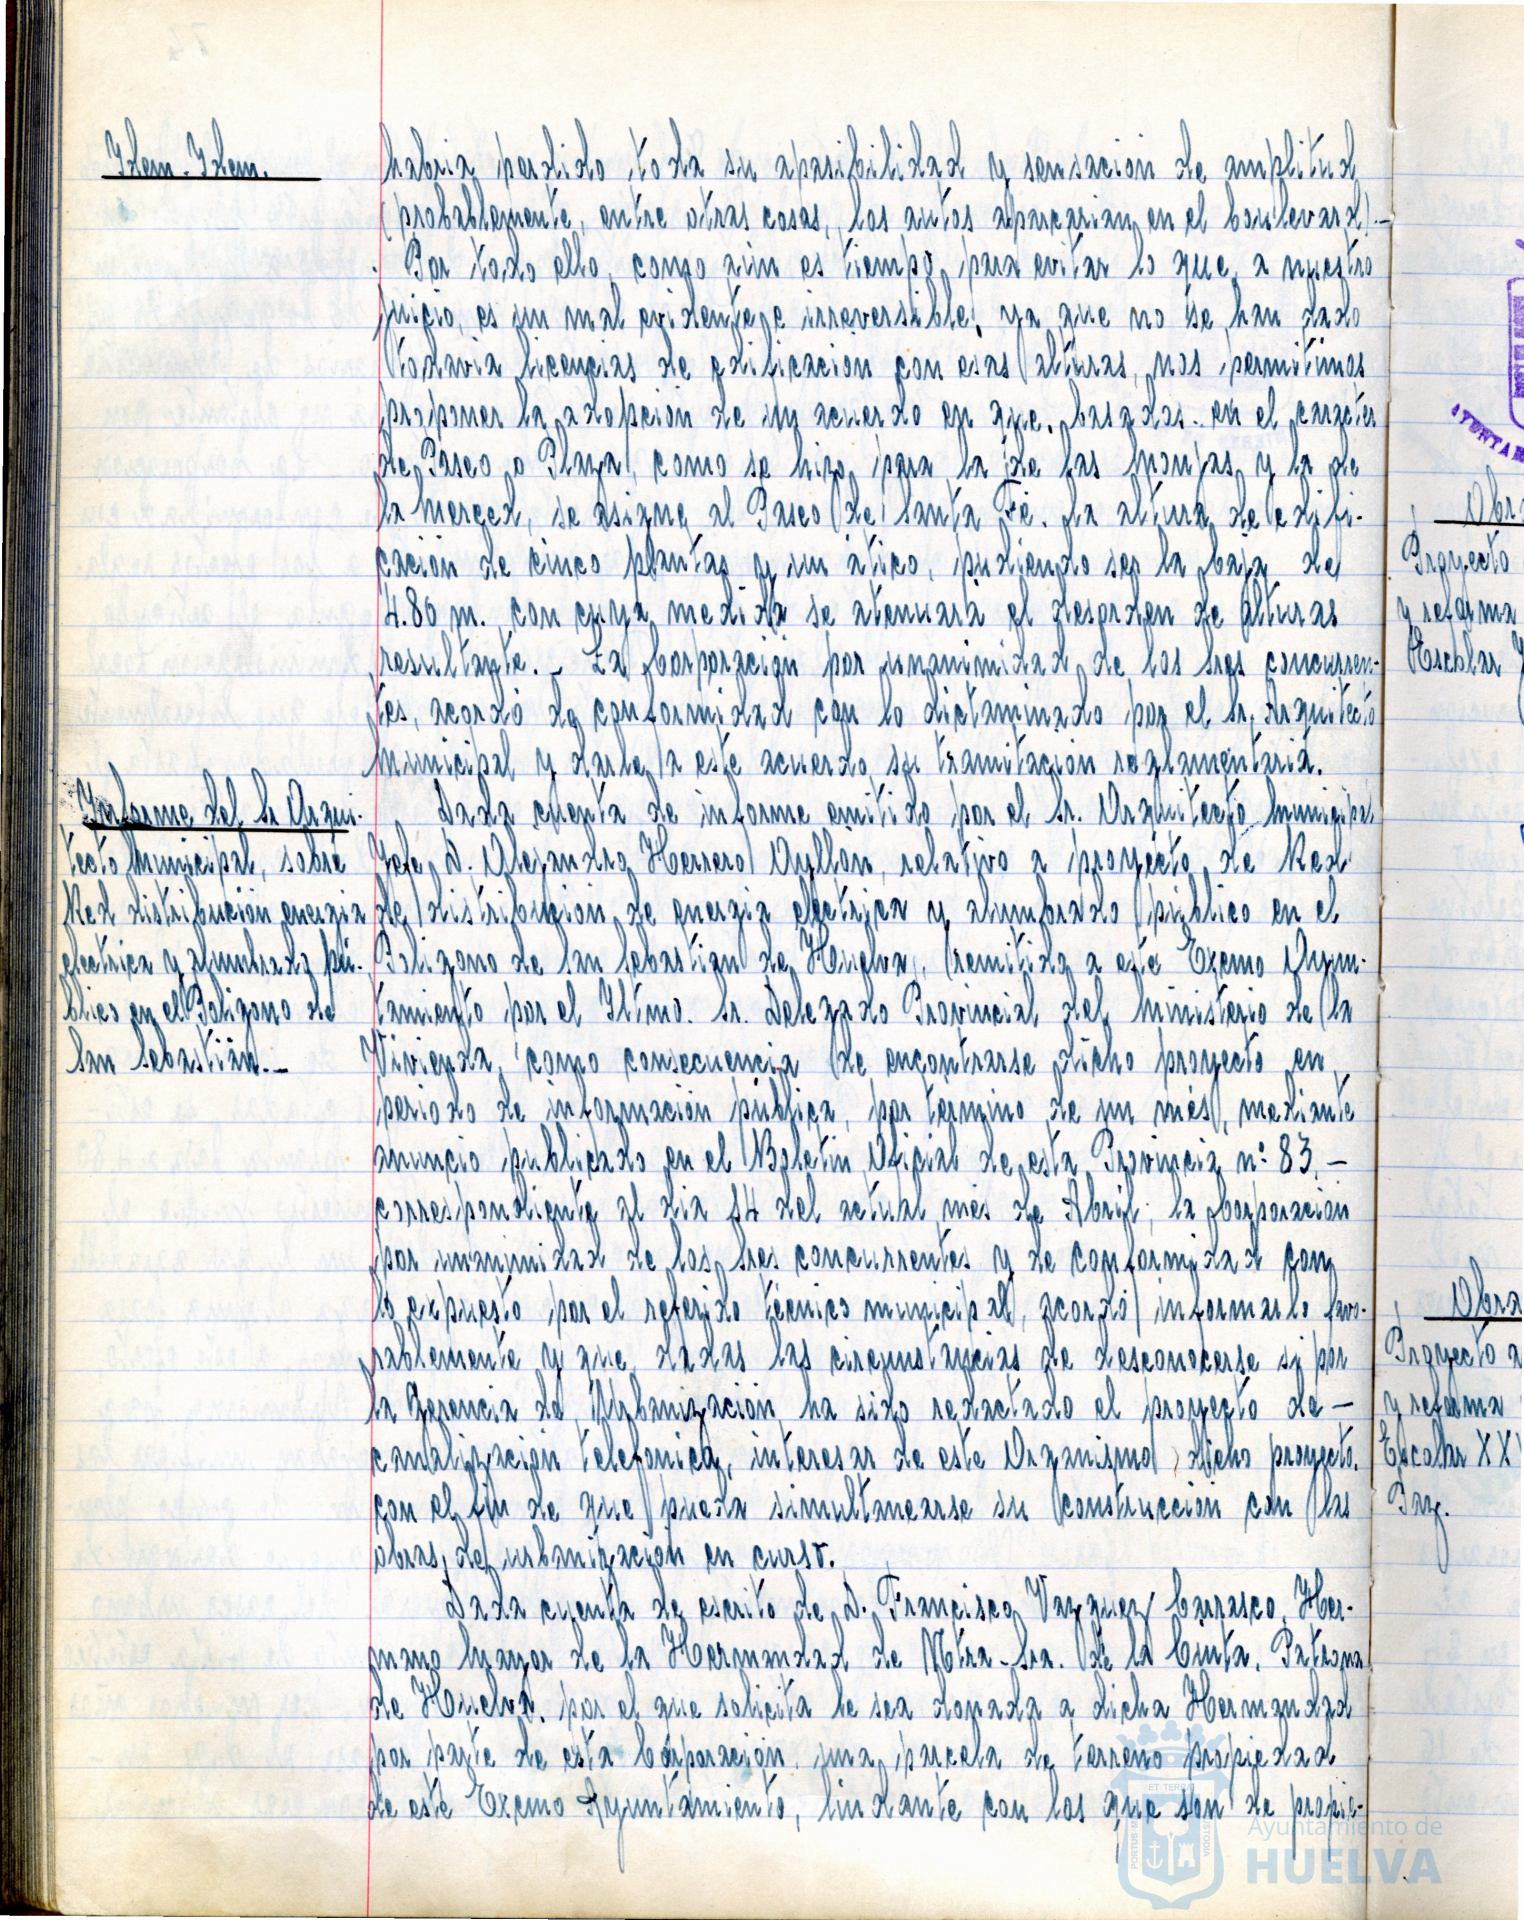 Idem-Idem.
habria perdido toda su apacibilidad y sensación de amplitud
(probablemente, entre otras cosas, los autos aparcarian en el boulevard).-
Por todo ello, como aún es tiempo, para evitar lo que, a nuestro
juicio, es un mal evidente e irreversible, ya que no se han dado
todavia licencias de edificación con esas alturas, nos permitimos
proponer la adopción de un acuerdo en que, basados en el carácter
de Paseo o Plaza, como se hizo para la de las Monjas y la de
la Merced, se asigne al Paseo de Santa Fé. la altura de edifi-
cación de cinco plantas y un ático, pudiendo ser la baja de
4.80 m. con cuya medida se atenuará el desorden de alturas
resultante.- La Corporación por unanimidad de los Sres concurren-
tes, acordó de conformidad con lo dictaminado por el Sr. Arquitecto
Municipal y darle a este acuerdo su tramitación reglamentaria.
Informe del Sr Arqui-
tecto Municipal, sobre
Red distribución energia
electrica y alumbrado pú-
blico en el Poligono de
San Sebastián.-
Dada cuenta de informe emitido por el Sr. Arquitecto Municipal
Jefe D. Alejandro Herrero Ayllón, relativo a proyecto de Red
de distribución de energia electrica y alumbrado público en el
Poligono de San Sebastián de Huelva, remitida a este Excmo Ayun-
tamiento por el Iltmo. Sr. Delegado Provincial del Ministerio de la
Vivienda, como consecuencia de encontrarse dicho proyecto en
periodo de información pública, por término de un més, mediante
anuncio publicado en el Boletin Oficial de esta Provincia nº 83,-
correspondiente al dia 14 del actual més de Abril; la Corporación
por unanimidad de los Sres concurrentes y de conformidad con
lo expuesto por el referido técnico municipal, acordó informarlo favo-
rablemente y que, dadas las circunstancias de desconocerse si por
la Gerencia de Urbanización ha sido redactado el proyecto de-
canalización telefonica, interesar de este Organismo dicho proyecto,
con el fin de que pueda simultanearse su construcción con las
obras de urbanización en curso.
Dada cuenta de escrito de D. Francisco Vazquez Carrasco, Her-
mano Mayor de la Hermandad de Ntra-Sra. de la Cinta, Patrona
de Huelva, por el que solicita le sea donada a dicha Hermandad
por parte de esta Corporación, una parcela de terreno propiedad
de este Excmo Ayuntamiento, lindante con los que son de propie-
Obra
Proyecto
y reforma
Escolar
Obra
Proyecto a
y reforma
Escolar XX
Paz.
AYUNTAM
ET TERRAE
PORTUS M
CUSTODIA
Ayuntamiento de
HUELVA